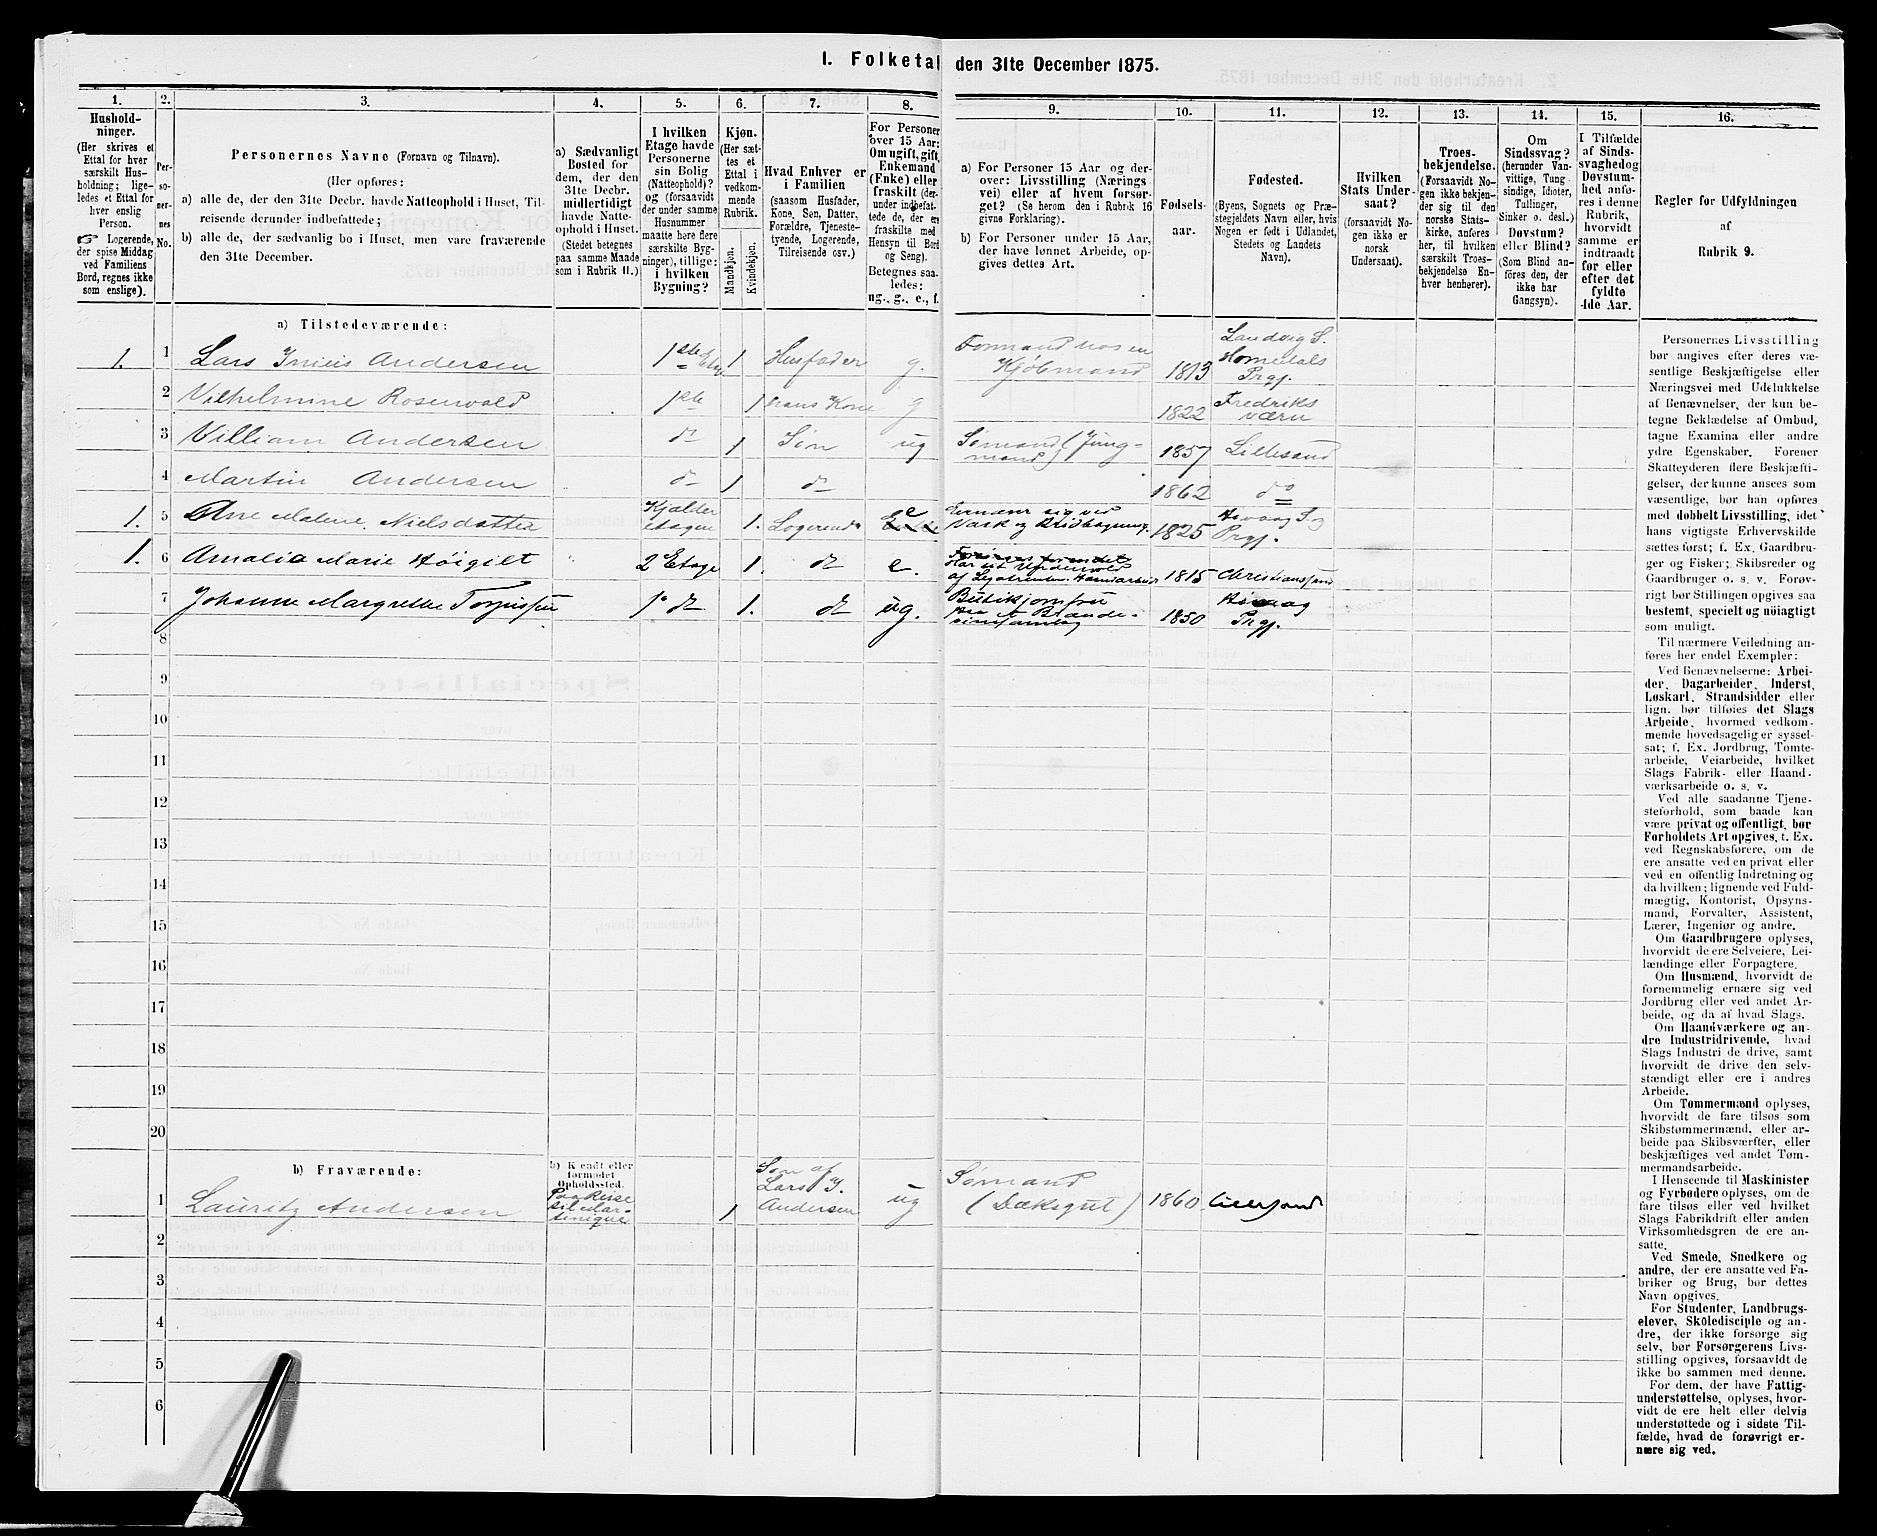 1. Folketal den 31te December 1875.
1.
Hushold-
ninger.
(Her skrives et
Ettal for hver
særskilt Hus-
holdning; lige-
ledes et Ettal for
hver enslig
Person.
☞ Logerende,
der spise Middag
ved Familiens
Bord, regnes ikke
som enslige).
2.
Per-
so-
ner-
nes
No.
3.
Personernes Navne (Fornavn og Tilnavn).
(Her opføres:
a) alle de, der den 31te Decbr. havde Natteophold i Huset, Til-
reisende derunder indbefattede;
b) alle de, der sædvanlig bo i Huset, men vare fraværende
den 31te December.
4.
a) Sædvanligt
Bosted for
dem, der den
31te Decbr.
midlertidigt
havde Natte-
ophold i Huset.
(Stedet betegnes
paa samme Maade
som i Rubrik 11.)
5.
I hvilken
Etage havde
Personerne
sin Bolig
(Natteophold)?
og (forsaavidt
der under samme
Husnummer
maatte høre flere
særskilte Byg-
ninger), tillige:
i hvilken
Bygning?
6.
Kjøn.
(Her sæt-
tes et
Ettal i
vedkom-
mende
Rubrik.
Mandkjøn.
Kvindekjøn.
7.
Hvad Enhver er
i Familien
(saasom Husfader,
Kone, Søn, Datter,
Forældre, Tjeneste-
tyende, Logerende,
Tilreisende osv.)
8.
For Personer
over 15 Aar:
Om ugift, gift,
Enkemand
(Enke) eller
fraskilt (der-
under indbefat-
tede de, der ere
fraskilte med
Hensyn til Bord
og Seng).
Betegnes saa-
ledes:
ug., g., e., f.
9.
a) For Personer 15 Aar og der-
over: Livsstilling (Nærings-
vei) eller af hvem forsør-
get? (Se herom den i Rubrik 16
givne Forklaring).
b) For Personer under 15 Aar,
der have lønnet Arbeide, op-
gives dettes Art.
10.
Fødsels-
aar.
11.
Fødested.
(Byens, Sognets og Præ-
stegjeldets Navn eller, hvis
Nogen er født i Udlandet,
Stedets og Landets
Navn).
12.
Hvilken
Stats Under-
saat?
(forsaavidt No-
gen ikke er
norsk
Undersaat).
13.
Troes-
bekjendelse.
(Forsaavidt No-
gen ikke bekjen-
der sig til den
norske Stats-
kirke, anføres
her, til hvilken
særskilt Troes-
bekjendelse En-
hver henhører).
14.
Om
Sindssvag?
(herunder Van-
vittige, Tung-
sindige, Idioter,
Tullinger,
Sinker o. desl.)
Døvstum?
eller Blind?
(Som Blind an-
føres den, der
ikke har
Gangsyn).
15.
I Tilfælde
af Sinds-
svaghed og
Døvstum-
hed anfø-
res i denne
Rubrik,
hvorvidt
samme er
indtraadt
før eller
efter det
fyldte
4de Aar.
16.
Regler for Udfyldningen
af
Rubrik 9.
a) Tilstedeværende:
1. 1 Lars Andersen 1ste Etag 1 Husfader g. Formand hos en Kjøbmand 1813 Landvig S. Homedals Prgj.
2 Vilhelmine Rosenvold 1ste 1 hans Kone g 1822 Fredriks værn
3 Villiam Andersen do 1 Søn ug Sømand (Jung- mand) 1857 Lillesand
4 Martin Andersen do 1 do 1862 do
1. 5 Ane Malene Nielsdatter Kjælder etagen 1. Logerende e Ernærer sig ved Vask og Brødbagning 1825 S. og Prgj.
1. 6 Amalia Marie Høigilt 2 Etage 1. do e. 1815 Christianssand
7 Johanne Margrethe Torjussen 1ª do 1. do ug. Butikjomfru 1850 Prgj.
8
9
10
11
12
13
14
15
16
17
18
19
20
b) Fraværende:
b) Kjendt eller
formodet
Opholdssted.
1 Lauritz Andersen Paa Reise til Mar- tinique 1 Søn af Lars I. Andersen ug Sømand (Dæksgut) 1860 Lillesand
2
3
4
5
6
Personernes Livsstilling
bør angives efter deres væ-
sentlige Beskjæftigelse eller
Næringsvei med Udelukkelse
af Benævnelser, der kun be-
tegne Beklædelse af Ombud,
tagne Examina eller andre
ydre Egenskaber. Forener
Skatteyderen flere Beskjæfti-
gelser, der kunne ansees som
væsentlige, bør han opføres
med dobbelt Livsstilling, idet
hans vigtigste Erhvervskilde
sættes først; f. Ex. Gaardbru-
ger og Fisker; Skibsreder og
Gaardbruger o. s. v. Forøv-
rigt bør Stillingen opgives saa
bestemt, specielt og nøiagtigt
som muligt.
Til nærmere Veiledning an-
føres her endel Exempler:
Ved Benævnelserne: Arbei-
der, Dagarbeider, Inderst,
Løskarl, Strandsidder eller
lign. bør tilføies det Slags
Arbeide, hvormed vedkom-
mende hovedsagelig er syssel-
sat; f. Ex. Jordbrug, Tomte-
arbeide, Veiarbeide, hvilket
Slags Fabrik- eller Haand-
værksarbeide o. s. v.
Ved alle saadanne Tjene-
steforhold, som baade kan
være privat og offentligt, bør
Forholdets Art opgives, t. Ex.
ved Regnskabsførere, om de
ere ansatte ved en privat eller
ved en offentlig Indretning og
da hvilken; lignende ved Fuld-
mægtig, Kontorist, Opsyns-
mand, Forvalter, Assistent,
Lærer, Ingeniør og andre.
Om Gaardbrugere oplyses,
hvorvidt de ere Selveiere, Lei-
lændinge eller Forpagtere.
Om Husmænd, hvorvidt de
fornemmelig ernære sig ved
Jordbrug eller ved andet Ar-
beide, og da af hvad Slags.
Om Haandværkere og an-
dre Industridrivende, hvad
Slags Industri de drive, samt
hvorvidt de drive den selv-
stændigt eller ere i andres
Arbeide.
Om Tømmermænd oplyses,
hvorvidt de fare tilsøs som
Skibstømmermænd, eller ar-
beide paa Skibsværfter, eller
beskjæftiges ved andet Tøm-
mermandsarbeide.
I Henseende til Maskinister
og Fyrbødere oplyses, om de
fare tilsøs eller ved hvilket
Slags Fabrikdrift eller anden
Virksomhedsgren de ere an-
satte.
Ved Smede, Snedkere og
andre, der ere ansatte ved Fa-
briker og Brug, bør dettes
Navn opgives.
For Studenter, Landbrugs-
elever, Skoledisciple og an-
dre, der ikke forsørge sig
selv, bør Forsørgerens Livs-
stilling opgives, forsaavidt de
ikke bo sammen med denne.
For dem, der have Fattig-
understøttelse, oplyses, hvor-
vidt de ere helt eller delvis
understøttede og i sidste Til-
fælde, hvad de forøvrigt er-
nære sig ved.